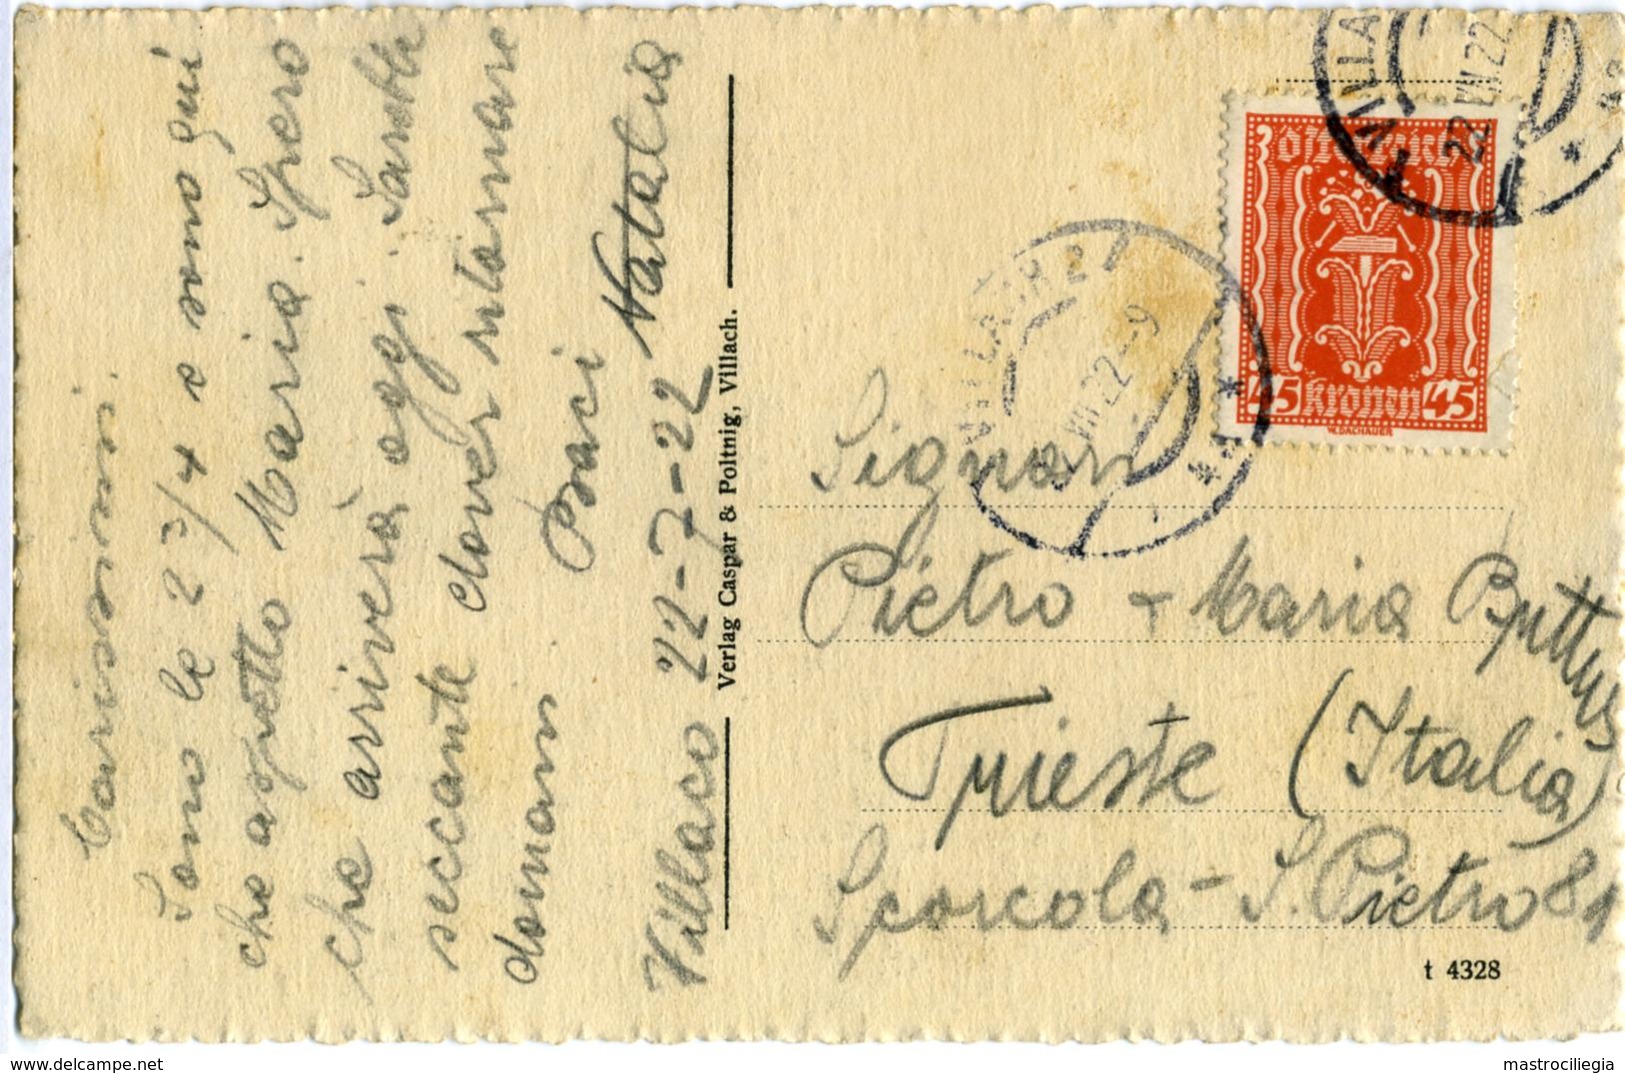 Carissimi
Sono le 2 3/4 e sono qui
che aspetto Maria. Spero
che arriverà oggi. Sarebbe
seccante dover ritornare
domani
Baci Natalia
Villaco 22-7-22
Verlag Caspar & Poltnig, Villach.
österreich
45 kronen 45
W.DACHAUER
VILLACH 2
VII 22-9
VILLA
22 VII 22
Signori
Pietro + Maria
Trieste (Italia)
Scorcola - S. Pietro 81
t 4328
mastrociliegia